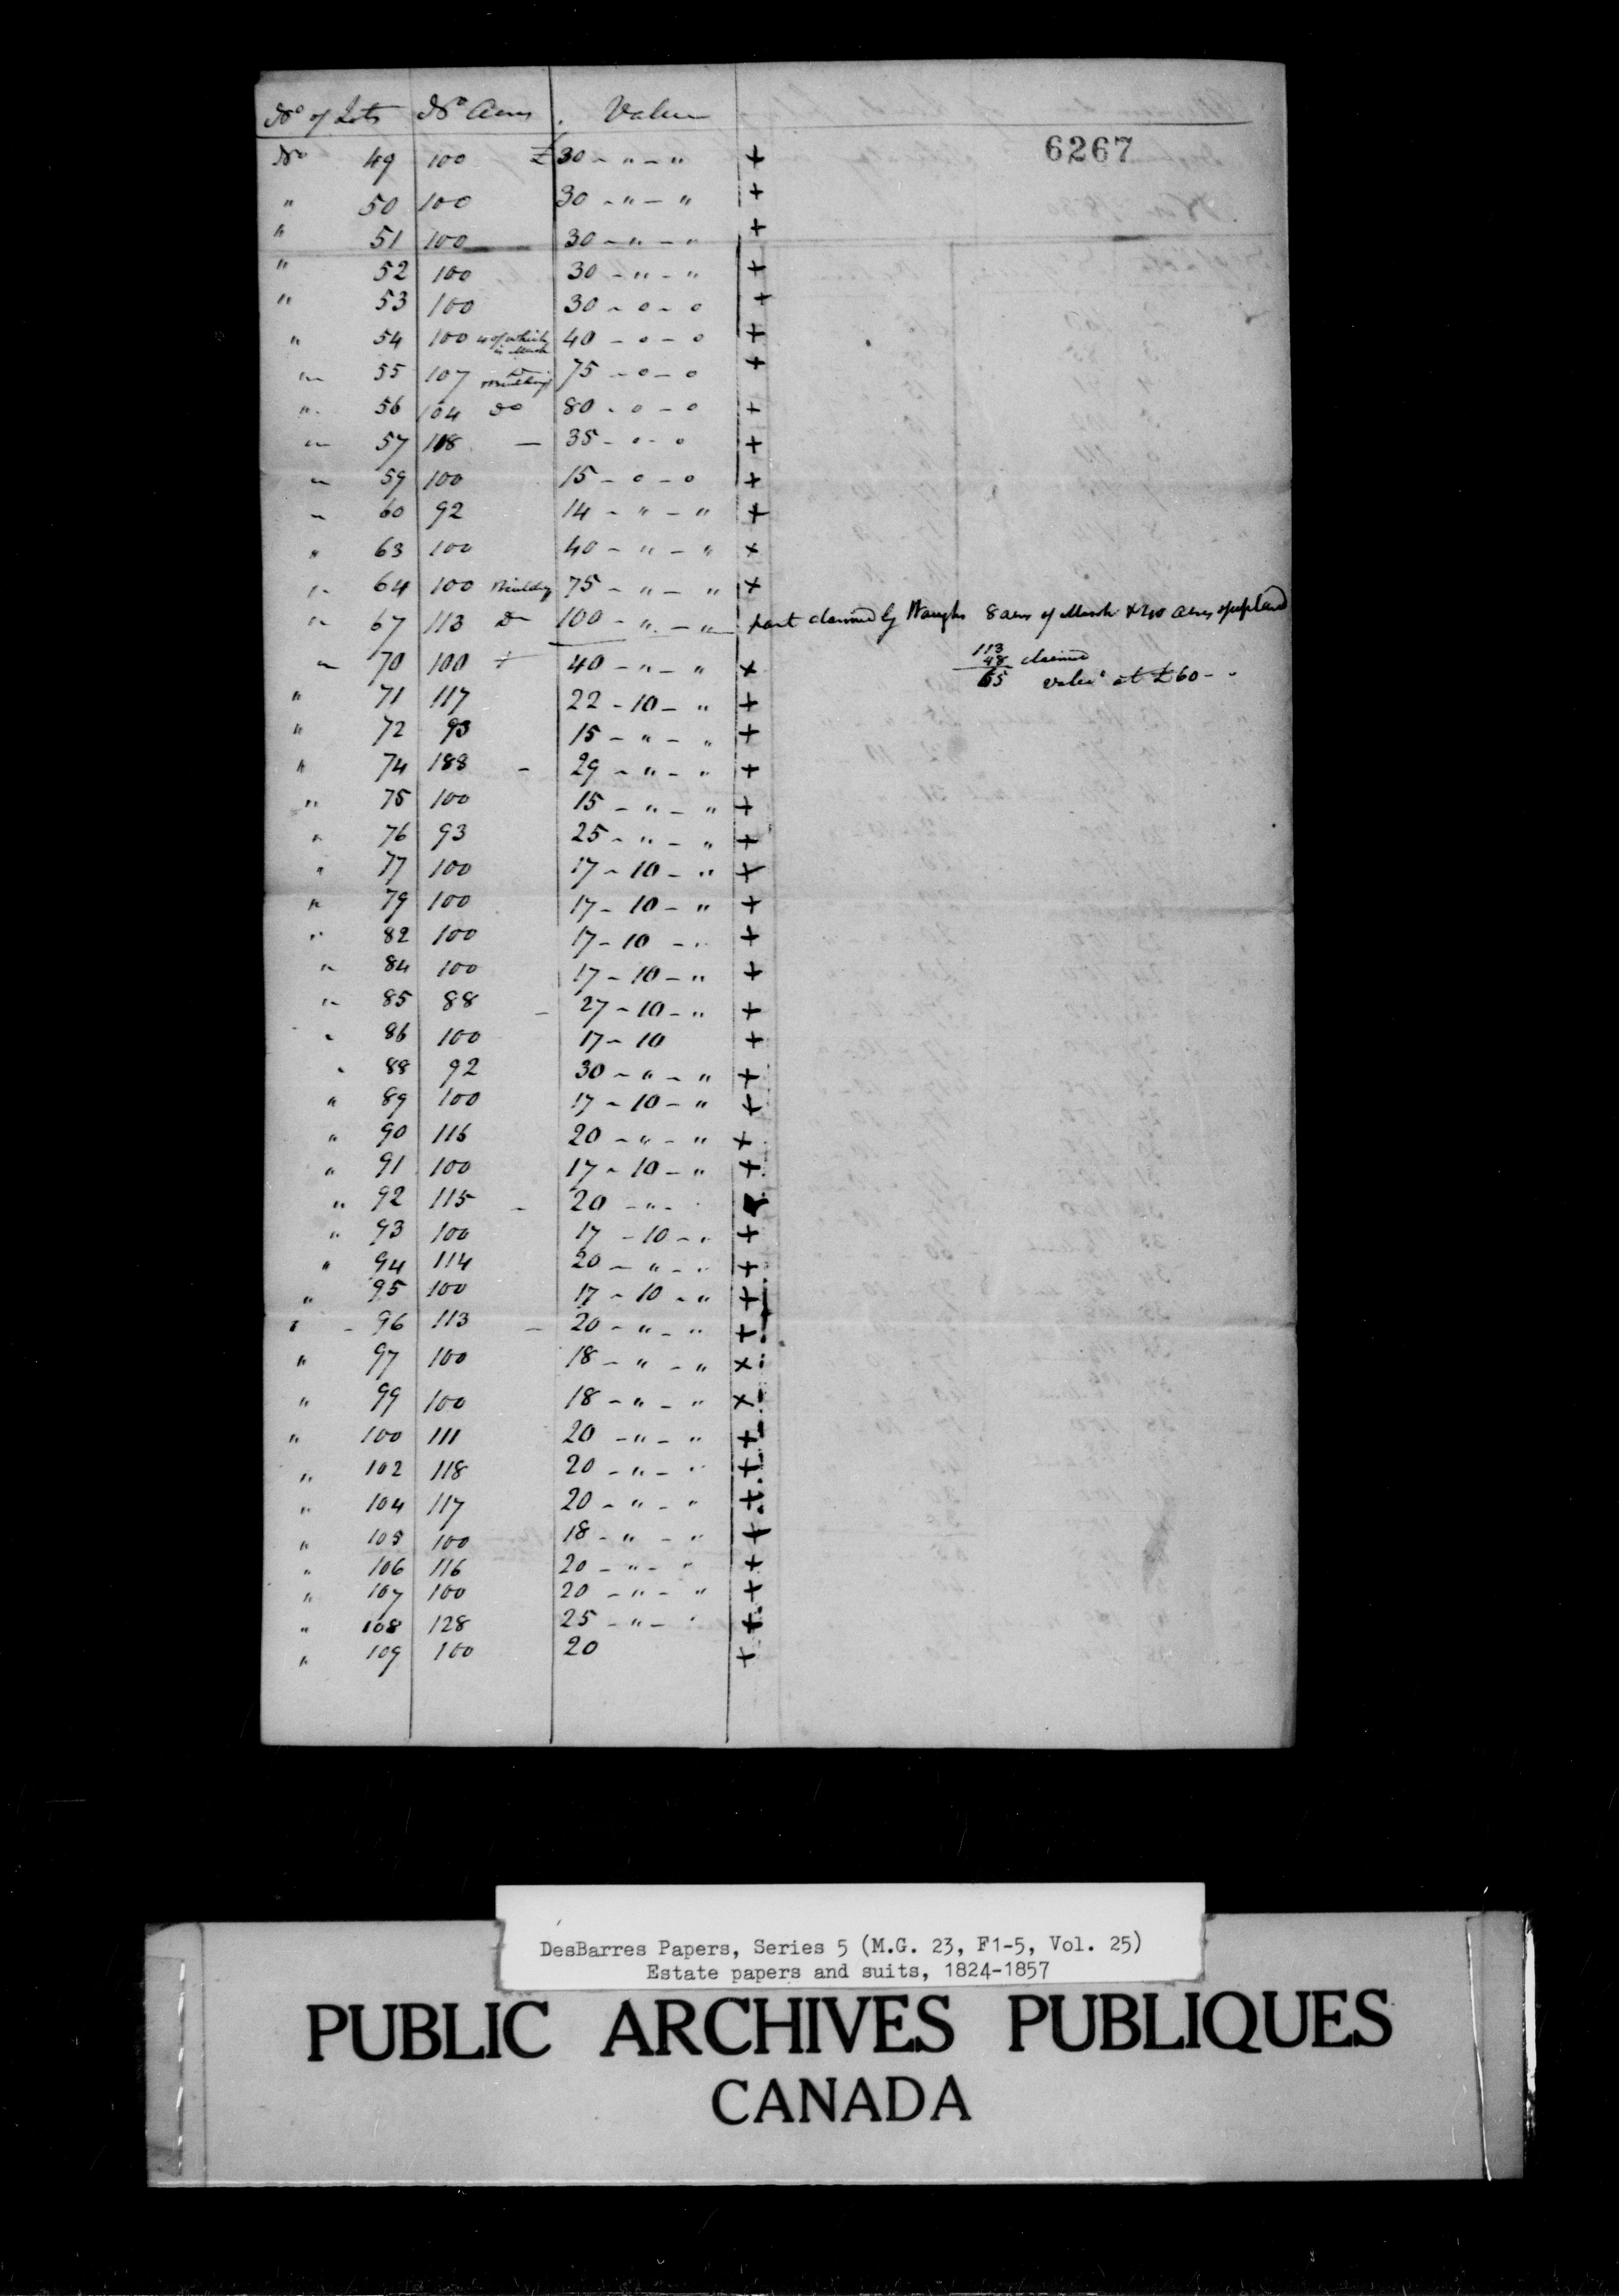 No of Lots No Acres Value
6267
No 49 100 £30 - " - " +
" 50 100 30 - " - " +
" 51 100 30 - " - " +
" 52 100 30 - " - " +
" 53 100 30 - 0 - 0 +
" 54 100 40 - 0 - 0 +
of which
is Marsh
" 55 107 75 - 0 - 0 +
" 56 104 Do 80 - 0 - 0 +
" 57 118 - 35 - 0 - 0 +
" 59 100 15 - 0 - 0 +
" 60 92 14 - " - " +
" 63 100 40 - " - " +
" 64 100 Building 75 - " - " +
" 67 113 Do 100 - " - " part claimed by Waugh 8 acres of Marsh & 40 acres of upland
113
48 claimed
65 value at £60 - -
" 70 100 + 40 - " - " +
" 71 117 22 - 10 - " +
" 72 93 15 - " - " +
" 74 188 - 29 - " - " +
" 75 100 15 - " - " +
" 76 93 25 - " - " +
" 77 100 17 - 10 - " +
" 79 100 17 - 10 - " +
" 82 100 17 - 10 - " +
" 84 100 17 - 10 - " +
" 85 88 - 27 - 10 - " +
" 86 100 17 - 10 +
" 88 92 30 - " - " +
" 89 100 17 - 10 - " +
" 90 116 20 - " - " +
" 91 100 17 - 10 - " +
" 92 115 - 20 - " - "
" 93 100 17 - 10 - " +
" 94 114 20 - " - " +
" 95 100 17 - 10 - " +
" - 96 113 - 20 - " - " +
" 97 100 18 - " - " +
" 99 100 18 - " - " +
" 100 111 20 - " - " +
" 102 118 20 - " - " +
" 104 117 20 - " - " +
" 105 100 18 - " - " +
" 106 116 20 - " - " +
" 107 100 20 - " - " +
" 108 128 25 - " - " +
" 109 100 20 +
DesBarres Papers, Series 5 (M.G. 23, F1-5, Vol. 25)
Estate papers and suits, 1824-1857
PUBLIC ARCHIVES PUBLIQUES
CANADA